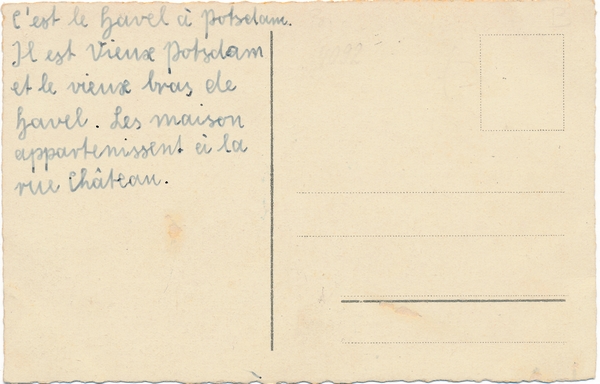 C'est le Havel à Potsdam.
Il est Vieux Potsdam
et le vieux bras de
Havel. Les maison
appartenissent à la
rue Château.